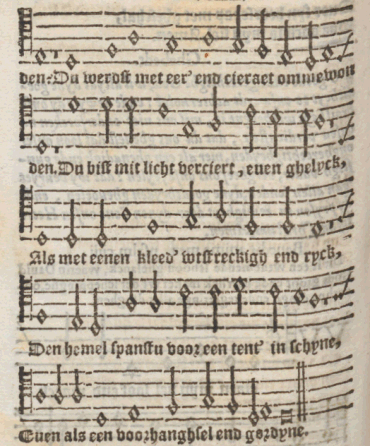 den: Du werdst met eer' end cieraet ommewon
den. Du bist mit licht verciert, euen ghelyck,
Als met eenen kleed' wtstreckigh end ryck,
Den hemel spanstu voor een tent' in schyne,
Euen als een voorhanghsel end gordyne.